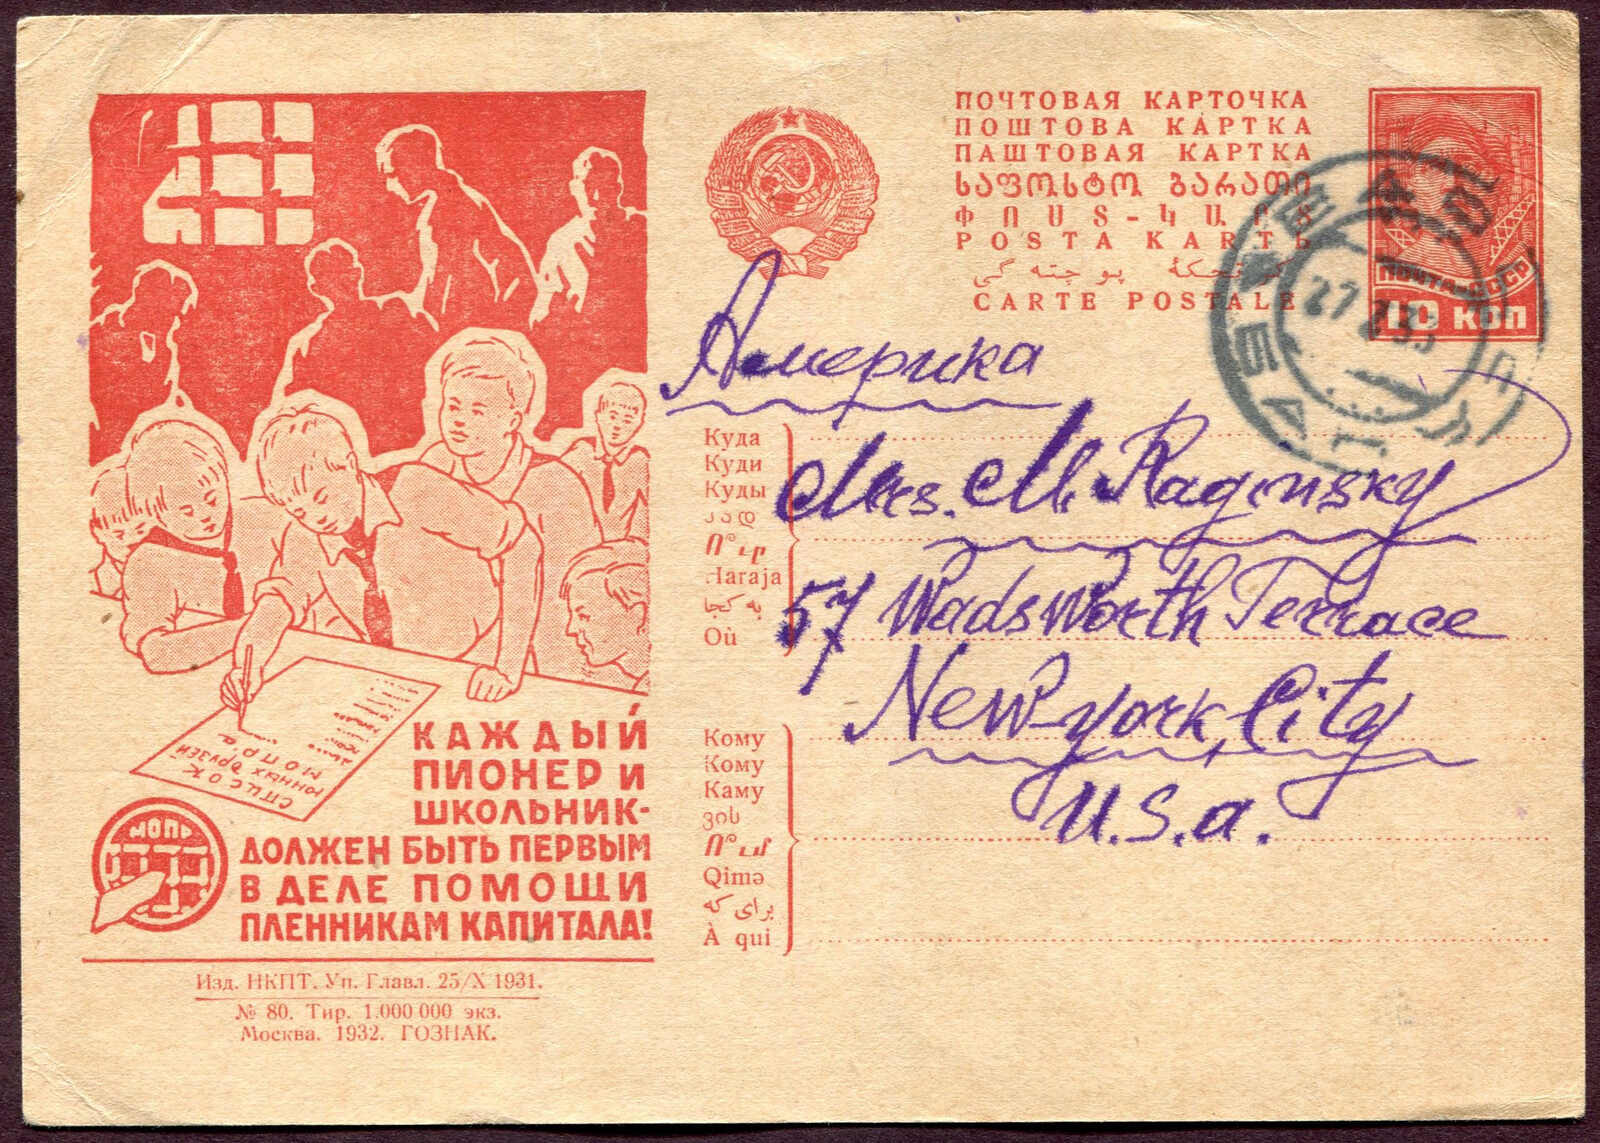 ПОЧТОВАЯ КАРТОЧКА
ПОШТОВА КАРТКА
ПАШТОВАЯ КАРТКА
ՓՈՍՏ-ԿԱՐՏ
POSTA KARTЬ
CARTE POSTALE
ПОЧТА СССР
10 КОП
27 7 33
Америка
Куда
Куди
Куды
Haraja
به کجا
Où
Mrs. M. Raginsky
57 Wadsworth Terrace
New York City
U.S.a.
Кому
Кому
Каму
ვის
Qimə
برای که
À qui
СПИСОК
ЮННЫХ ДРУЗЕЙ
МОПР.а
МОПР
КАЖДЫЙ
ПИОНЕР И
ШКОЛЬНИК-
ДОЛЖЕН БЫТЬ ПЕРВЫМ
В ДЕЛЕ ПОМОЩИ
ПЛЕННИКАМ КАПИТАЛА!
Изд. НКПТ. Уп. Главл. 25/X 1931.
№ 80. Тир. 1.000 000 экз.
Москва. 1932. ГОЗНАК.